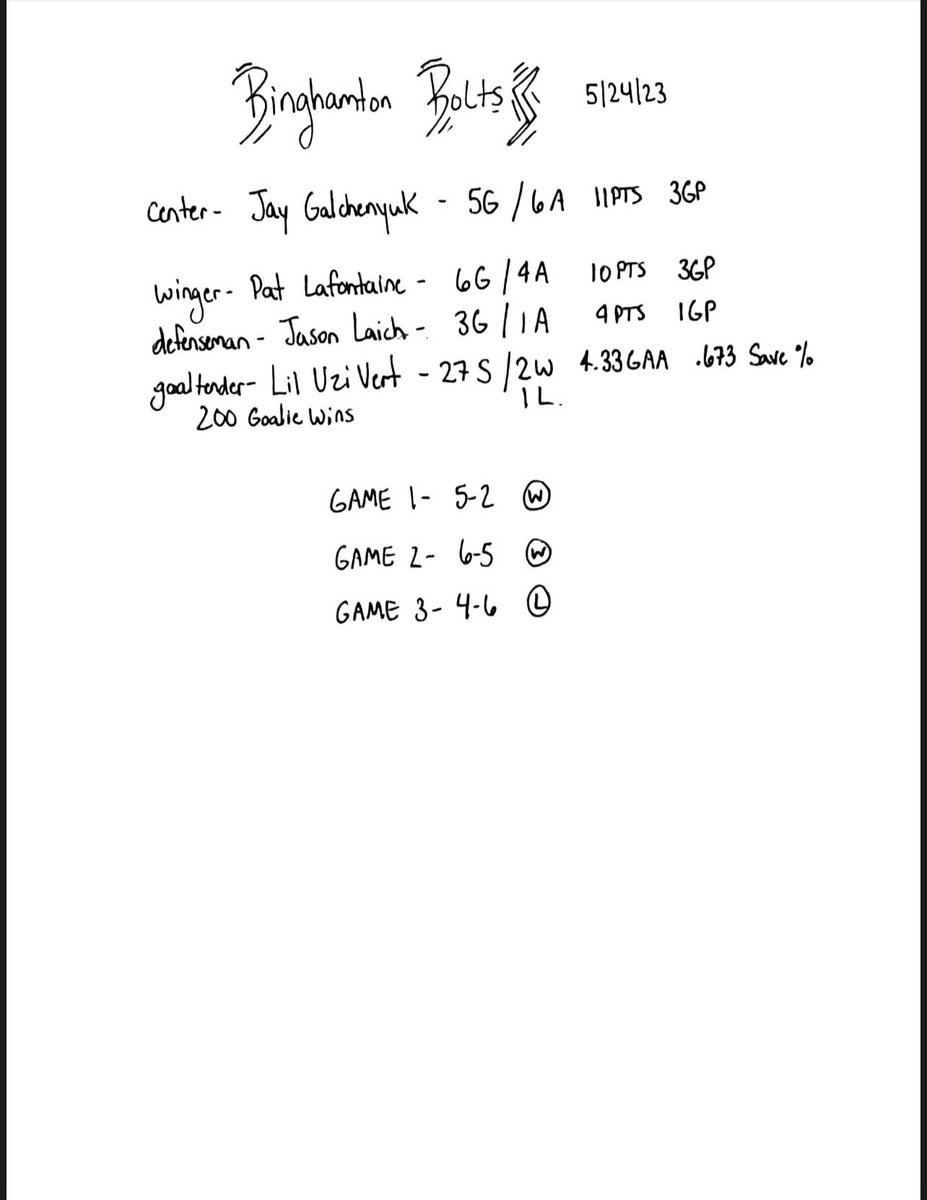 Binghamton Bolts 5/24/23
center- Jay Galchenyuk - 5G/6A 11PTS 3GP
winger- Pat Lafontaine - 6G/4A 10 PTS 3GP
defenseman- Jason Laich- 3G/1A 4 PTS 1GP
goaltender- Lil Uzi Vert - 27 S/2W 4.33GAA .673 Save %
1L.
200 Goalie Wins
GAME 1- 5-2 W
GAME 2- 6-5 W
GAME 3- 4-6 L